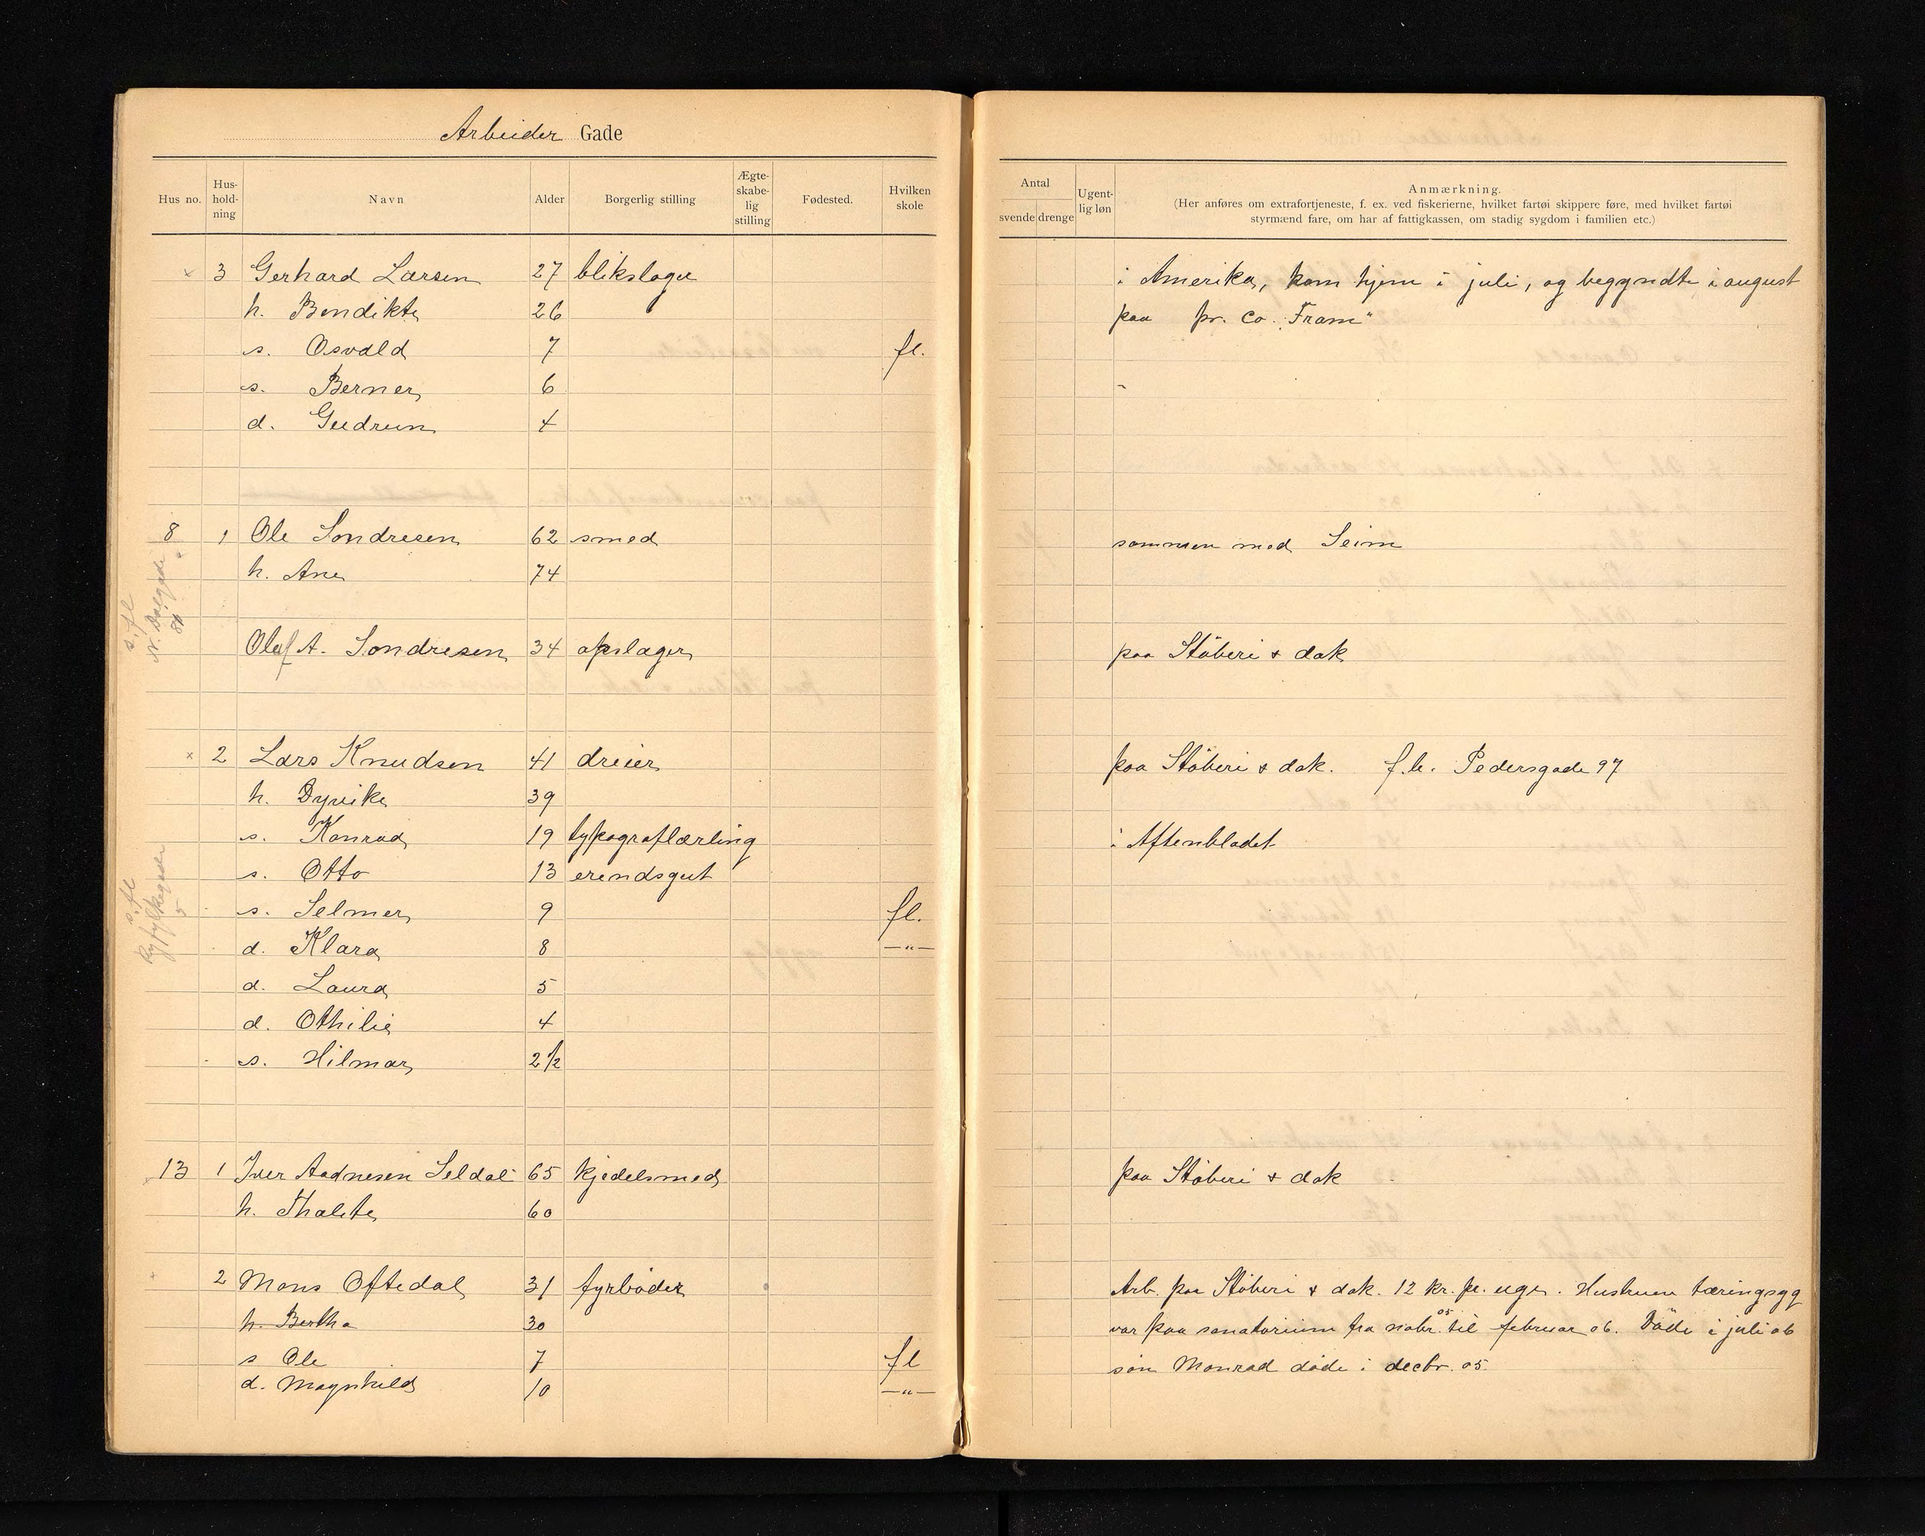 Arbeider Gade
Hus no. Hus-hold-ning Navn Alder Borgerlig stilling Ægte-skabe-lig stilling Fødested. Hvilken skole
Antal svende drenge Ugent-lig løn Anmærkning.
(Her anføres om extrafortjeneste, f. ex. ved fiskerierne, hvilket fartøi skippere føre, med hvilket fartøi
styrmænd fare, om har af fattigkassen, om stadig sygdom i familien etc.)
× 3 Gerhard Larsen 27 blikslager i Amerika, kom hjem i juli, og begyndte i august
h. Bendikte 26 paa pr. Co. "Fram"
s. Osvald 7 fl.
s. Berner 6
d. Gudrun 4
8 1 Ole Sondresen 62 smed sammen med Seim
h. Ane 74
s. fl
N. Dalgade
80
Oluf A. Sondresen 34 opslager paa Støberi & dok
× 2 Lars Knudsen 41 dreier paa Støberi & dok. f.b. Pedersgade 97
h. Dyveke 39
s. Konrad 19 typograflærling i Aftenbladet
s. Otto 13 erendsgut
s. fl
Ryfylkegade
5
s. Selmer 9 fl.
d. Klara 8 —"—
d. Laura 5
d. Othilie 4
s. Hilmar 2 1/2
13 1 Iver Aadnesen Seldal 65 kjedelsmed paa Støberi & dok
h. Thalete 60
2 Mons Oftedal 31 fyrbøder Arb. paa Støberi & dok. 12 kr. pr. uge. Hustruen tæringsyg
h. Bertha 30 var paa sanatorium fra nobr. 05 til februar 06. Døde i juli 06
s Ole 7 fl søn Monrad døde i decbr. 05
d. Magnhild 10 —"—